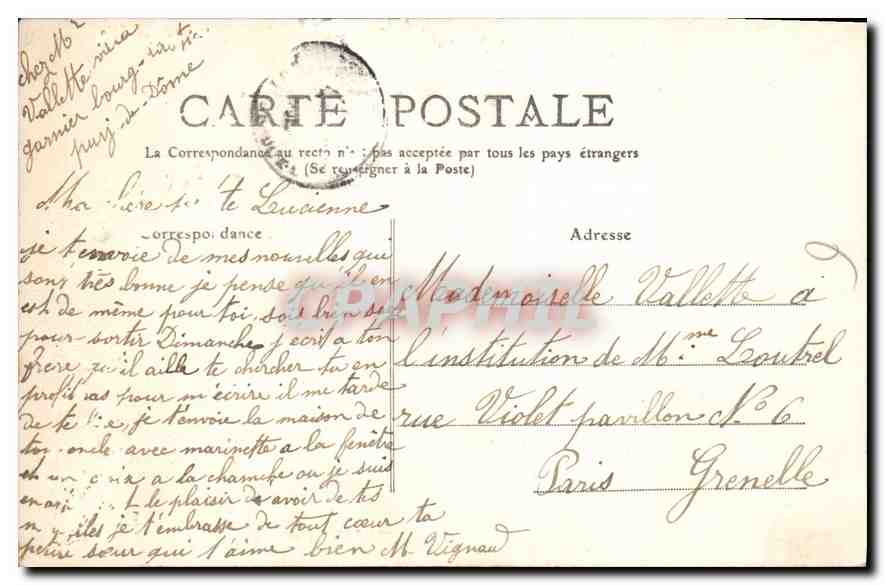 chez Mr
Vallette
garnier bourg-
puy-de-Dôme
CARTE POSTALE
La Correspondance au recto n'est pas acceptée par tous les pays étrangers
(Se renseigner à la Poste)
Ma Lucienne
Correspondance
Adresse
je t'envoie de mes nouvelles qui
sont très bonne je pense qu'il en
est de même pour toi, sois bien
pour sortir Dimanche j'ecris a ton
frère qu'il aille te chercher tu en
profiteras pour m'écrire il me tarde
de te lire, je t'envoie la maison de
ton oncle avec marinette a la fenêtre
et un croix a la chambre ou je suis
le plaisir de avoir de tes
je t'embrasse de tout cœur ta
petite sœur qui t'aime bien M. Vignaud
Mademoiselle Vallette à
l'institution de Mme Loutrel
rue Violet pavillon No 6
Paris Grenelle
CPAPHIL